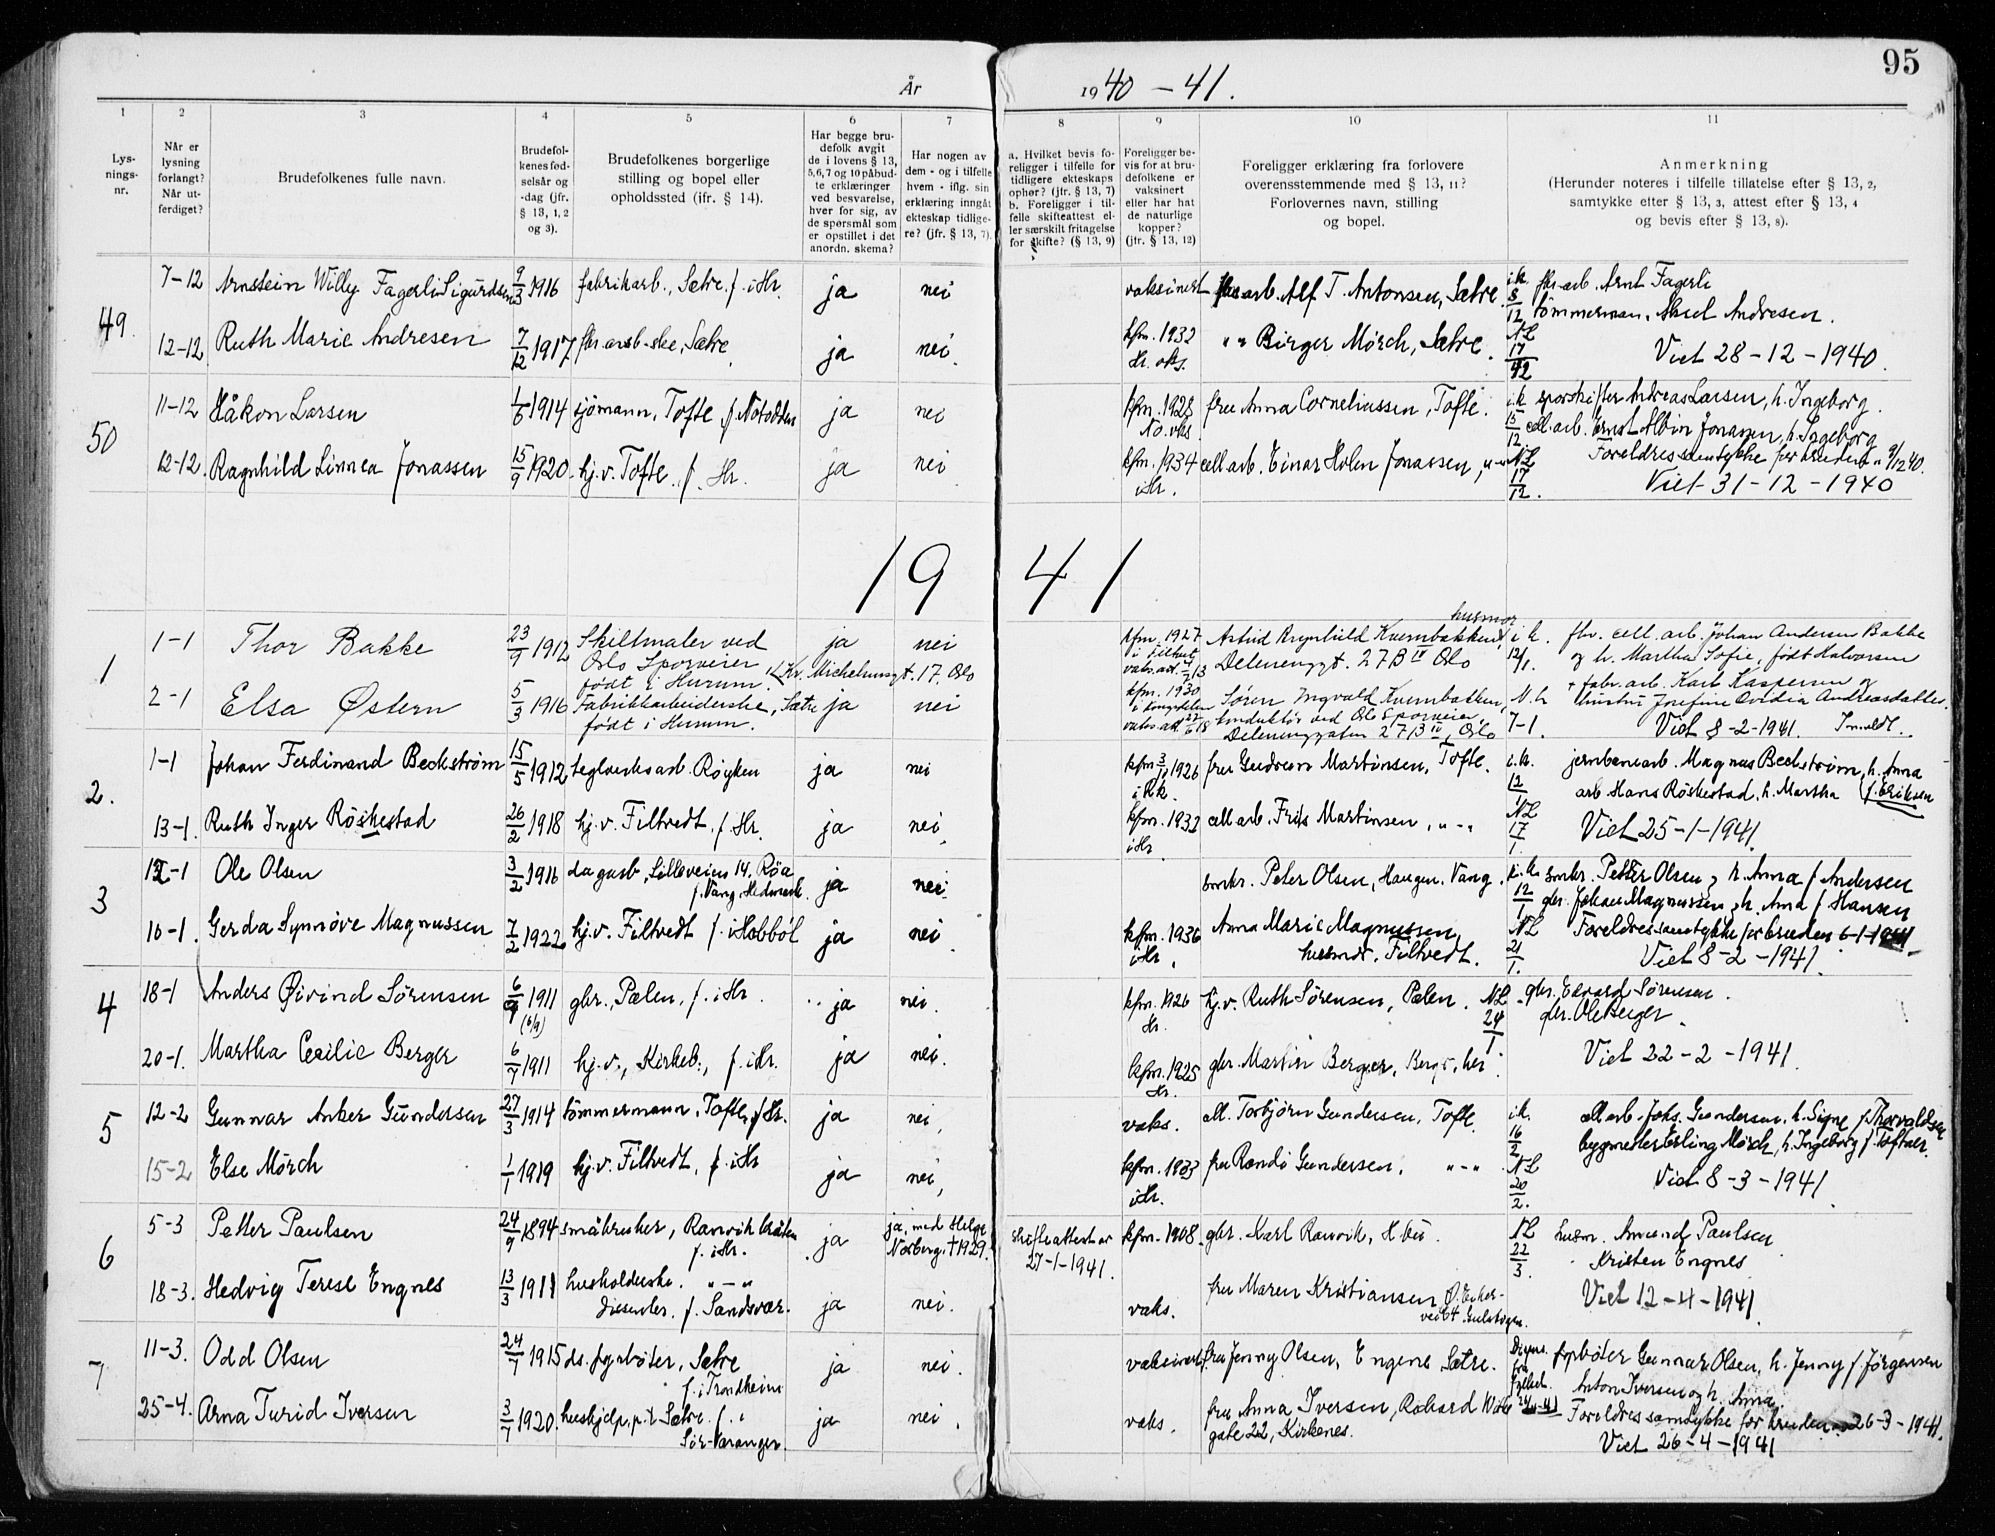 95
År 1940 – 41.
1 2 3 4 5 6 7 8 9 10 11
Lys-
nings-
nr.
Når er
lysning
forlangt?
Når ut-
ferdiget?
Brudefolkenes fulle navn.
Brudefol-
kenes fød-
selsår og
-dag (jfr.
§ 13, 1, 2
og 3).
Brudefolkenes borgerlige
stilling og bopel eller
opholdssted (jfr. § 14).
Har begge bru-
defolk avgit
de i lovens § 13,
5,6,7 og 10 påbud-
te erklæringer
ved besvarelse,
hver for sig, av
de spørsmål som
er opstillet i det
anordn. skema?
Har nogen av
dem - og i tilfelle
hvem - iflg. sin
erklæring inngått
ekteskap tidlige-
re? (jfr. § 13, 7).
a. Hvilket bevis fo-
religger i tilfelle for
tidligere ekteskaps
ophør? (jfr. § 13, 7)
b. Foreligger i til-
felle skifteattest el-
ler særskilt fritagelse
for skifte? (§ 13, 9)
Foreligger be-
vis for at bru-
defolkene er
vaksinert
eller har hat
de naturlige
kopper?
(jfr. § 13, 12)
Foreligger erklæring fra forlovere
overensstemmende med § 13, 11?
Forlovernes navn, stilling
og bopel.
Anmerkning
(Herunder noteres i tilfelle tillatelse efter § 13, 2,
samtykke efter § 13, 3, attest efter § 13, 4
og bevis efter § 13, 8).
49. 7-12 Arnstein Willy Fagerli Sigurdsen 9/3 1916 fabrikarb., Sætre. f. i Hr. ja nei vaksinert fbr. arb. Alf T. Antonsen, Sætre. i.k. 8/12 fbr.-arb. Arnt Fagerli
tömmerman. Aksel Andresen.
12-12 Ruth Marie Andresen 7/12 1917 fbr. arb-ske, Sætre. ja nei. kfm. 1932 Hr. vks. " " Birger Mörch, Sætre. NL 17/12 Viet 28-12-1940.
50 11-12 Håkon Larsen 1/6 1914 sjömann, Tofte, f. Notodden ja nei kfm. 1928 No. vks. frue Anna Corneliussen, Tofte. i.k 15/12 sporskifter Andreas Larsen, h. Ingeborg.
cell. arb. Ernst Albin Jonassen, h. Ingeborg
12-12. Ragnhild Linnea Jonassen 15/9 1920. hj.v. Tofte. f. Hr. ja nei kfm. 1934 i Hr. cell arb. Einar Holm Jonassen, "-" NL 17/12. Foreldres samtykke for bruden 9/12 40.
Viet 31-12-1940
1941
1 1-1 Thor Bakke 23/9 1912 Skiltmaler ved
Oslo Sporveier
født i Hurum. Kr. Michelsensgt. 17. Oslo ja nei kfm. 1927 i Filtvet Astrid Ragnhild Kvernbakken, husmor
Delenenggt. 27B IV Oslo i k. 12/1. fbr. cell. arb. Johan Andersen Bakke
og h. Martha Sofie, født Halvorsen
2-1 Elsa Østern 5/3 1916 Fabrikkarbeiderske, Sætre
født i Hurum. ja nei kfm. 1930 Sören Ingvald Kvernbakken,
konduktör ved Oslo Sporveier,
Delenenggaten 27B IV, Oslo N.L 7-1. fabr. arb. Karl Kaspersen og
hustru Josefine Ovidia Andreasdatter.
Viet 8-2-1941. Innmeldt.
2. 1-1 Johan Ferdinand Beckstrøm 15/5 1912 teglverksarb. Røyken ja nei kfm 1926 i Rk. fru Gudrun Martinsen, Tofte. i.k. 12/1 jernbanearb. Magnus Beckstrøm, h. Anna
f. Eriksen
arb Hans Röskestad, h. Martha
13-1. Ruth Inger Röskestad 26/2 1918 hj.v. Filtvedt, f. Hr. ja nei. kfm. 1932 i Hr cell arb. Frits Martinsen, "-" NL 17/1. Viet 25-1-1941.
3 12-1 Ole Olsen 3/2 1916 dagarb, Lilleveien 14, Röa
f. Vang, Hedmark. ja nei. smbr. Peter Olsen, Haugen. Vang. i.k. 12/1 smbr. Petter Olsen og h. Anna f Andersen
gbr. Johan Magnussen, h. Anna f Hansen
16-1. Gerda Synnøve Magnussen 7/2 1922 hj.v. Filtvedt f. i Hobböl ja nei. kfm. 1936 i Hr. Anna Marie Magnussen,
husmor. Filtvedt. NL 21/1. Foreldres samtykke for bruden 6-1-1941
Viet 8-2-1941.
4 18-1 Anders Øivind Sörensen 6/9 1911 (6/9) gbr., Pælen, f. i Hr. ja nei. kfm. 1926 Hr. hj.v. Ruth Sörensen, Pælen. NL 24/1 gbr. Edvard Sörensen.
gbr. Ole Berger.
20-1. Martha Cecilie Berger 6/7 1911 hj.v., Kirkeb., f. i Hr. ja nei. kfm. 1925 Hr. gbr. Martin Berger, Berg, her. Viet 22-2-1941.
5 12-2 Gunnar Anker Gundersen 27/3 1914 tömmermann, Tofte, f. Hr. ja nei, vaks. cell. Torbjörn Gundersen, Tofte. i.k. 16/2 cell arb. Johs. Gundersen, h. Signe f. Thorvaldsen
bygmester Erling Mörch, h. Ingeborg f. Toftner.
15-2 Else Mörch 1/1 1919 hj.v. Filtvedt, f. i Hr ja nei, kfm. 1933 i Hr. fru Randi Gundersen, "-" NL 20/2. Viet 8-3-1941.
6 5-3 Petter Paulsen 24/9 1894 småbruker, Ranvikbråten
f. i Hr. ja ja, med Helga
Norberg, † 1929. skifteattest av
27-1-1941. kfm. 1908. gbr. Karl Ranvik, H. bu. NL 22/3. husm. Amund Paulsen
Kristen Engnes
18-3. Hedvig Terese Engnes 13/3 1911 husholderske. "-"
dissenter. f. Sandsvær. ja nei. vaks. fru Maren Kristiansen Viet 12-4-1941.
7 11-3. Odd Olsen 24/7 1915 ds. fyrböter, Sætre
f. i Trondheim ja nei. vaksinert fru Jenny Olsen, Engene Sætre. fyrböter Gunnar Olsen, h. Jenny f. Jörgensen
Anton Iversen og h. Anna.
25-4. Arna Turid Iversen 3/7 1920. hushjelp, p.t. Sætre. f. i
Sör-Varanger. ja nei. vaks. fru Anna Iversen, Rikard
gate 22, Kirkenes. Foreldres samtykke for bruden 26-3-1941.
Viet 26-4-1941